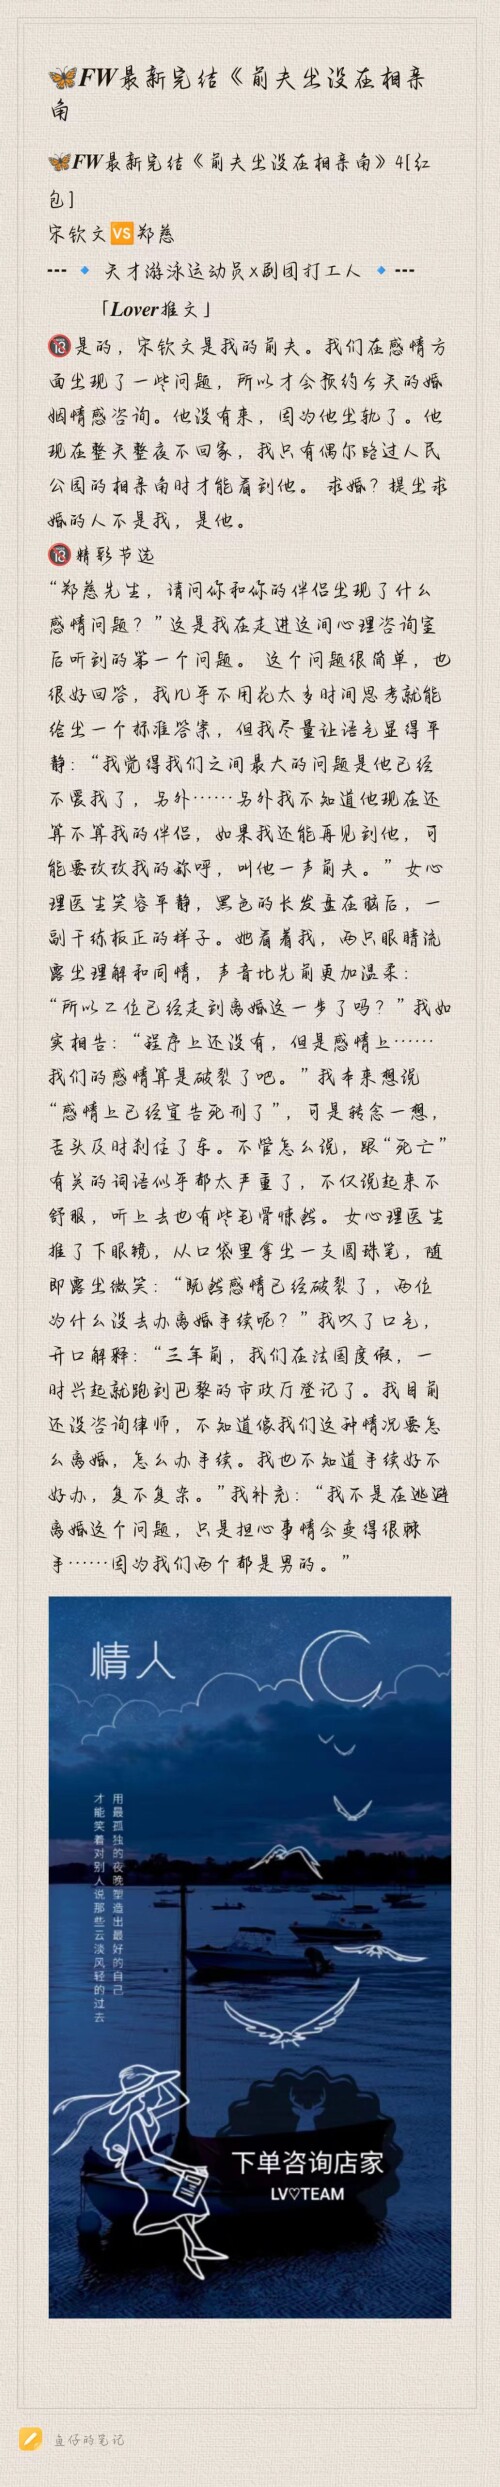 🦋FW最新完结《前夫出没在相亲
角
🦋FW最新完结《前夫出没在相亲角》4[红
包]
宋钦文🆚郑慈
--- 🔹 天才游泳运动员x剧团打工人 🔹---
「Lover推文」
🔞是的，宋钦文是我的前夫。我们在感情方
面出现了一些问题，所以才会预约今天的婚
姻情感咨询。他没有来，因为他出轨了。他
现在整天整夜不回家，我只有偶尔路过人民
公园的相亲角时才能看到他。 求婚？提出求
婚的人不是我，是他。
🔞精彩节选
“郑慈先生，请问你和你的伴侣出现了什么
感情问题？”这是我在走进这间心理咨询室
后听到的第一个问题。 这个问题很简单，也
很好回答，我几乎不用花太多时间思考就能
给出一个标准答案，但我尽量让语气显得平
静：“我觉得我们之间最大的问题是他已经
不爱我了，另外……另外我不知道他现在还
算不算我的伴侣，如果我还能再见到他，可
能要改改我的称呼，叫他一声前夫。”女心
理医生笑容平静，黑色的长发盘在脑后，一
副干练板正的样子。她看着我，两只眼睛流
露出理解和同情，声音比先前更加温柔：
“所以二位已经走到离婚这一步了吗？”我如
实相告：“程序上还没有，但是感情上……
我们的感情算是破裂了吧。”我本来想说
“感情上已经宣告死刑了”，可是转念一想，
舌头及时刹住了车。不管怎么说，跟“死亡”
有关的词语似乎都太严重了，不仅说起来不
舒服，听上去也有些毛骨悚然。 女心理医生
推了下眼镜，从口袋里拿出一支圆珠笔，随
即露出微笑：“既然感情已经破裂了，两位
为什么没去办离婚手续呢？”我叹了口气，
开口解释：“三年前，我们在法国度假，一
时兴起就跑到巴黎的市政厅登记了。我目前
还没咨询律师，不知道像我们这种情况要怎
么离婚，怎么办手续。我也不知道手续好不
好办，复不复杂。”我补充：“我不是在逃避
离婚这个问题，只是担心事情会变得很棘
手……因为我们两个都是男的。”
情人
用最孤独的夜晚塑造出最好的自己
才能笑着对别人说那些云淡风轻的过去
下单咨询店家
LV♡TEAM
鱼仔的笔记